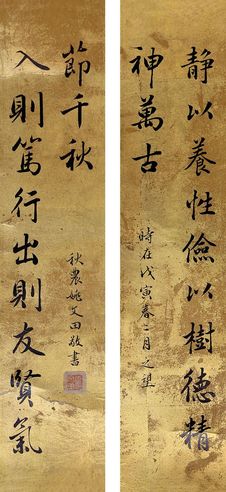 静以養性儉以樹德精
神萬古
時在戊寅春二月之望
入則篤行出則友賢氣
節千秋
秋農姚文田敬書